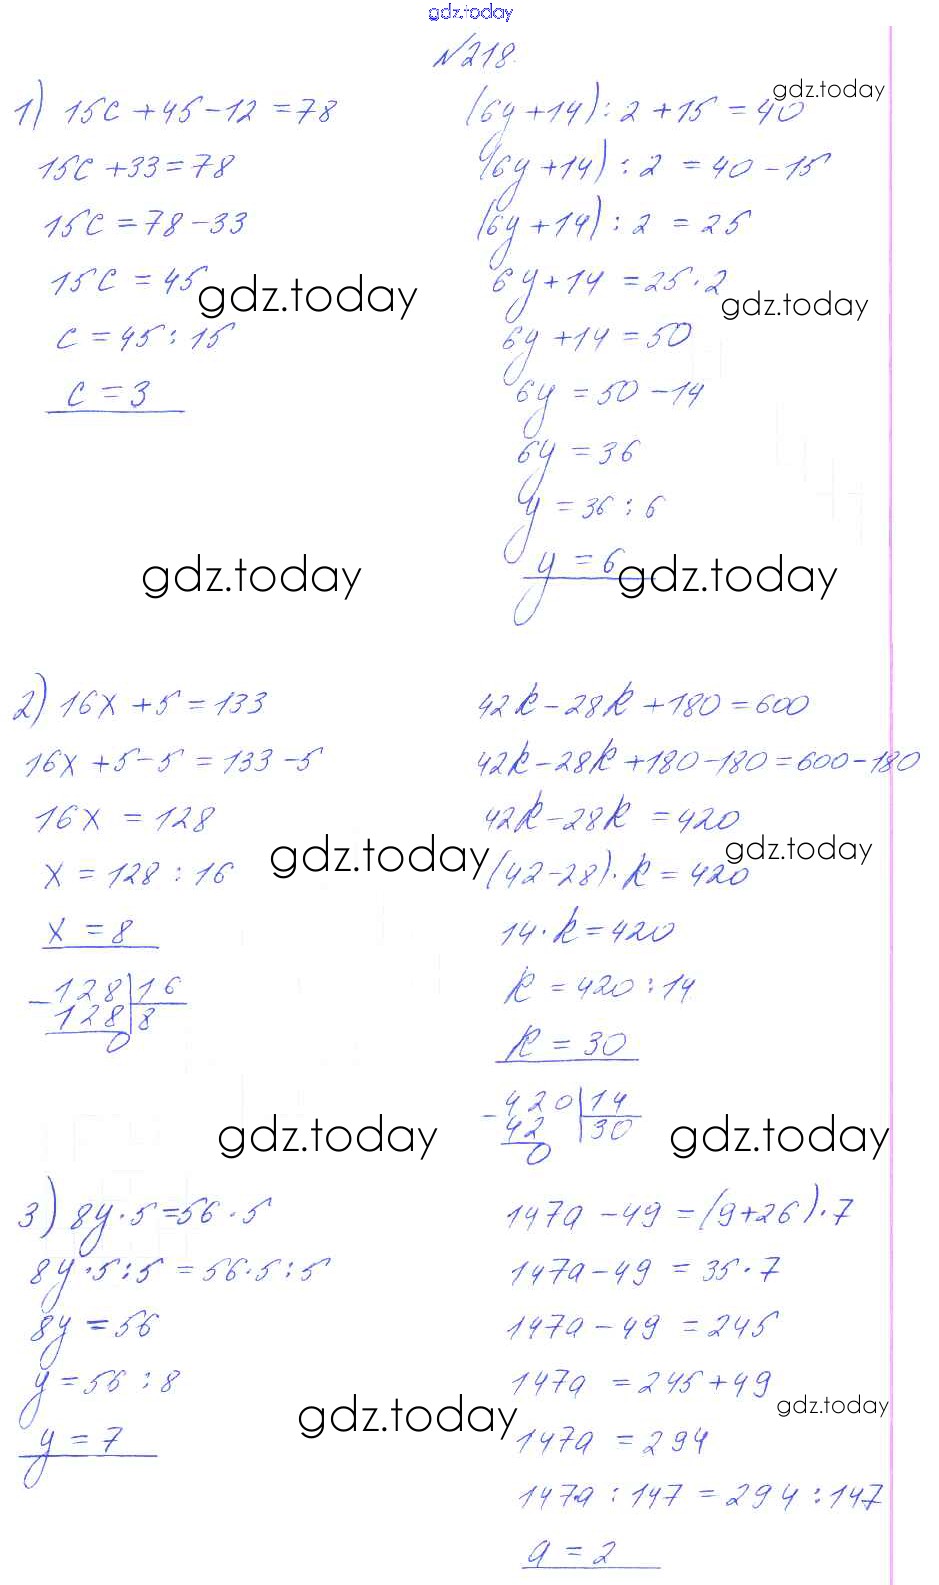 gdz.today
№218.
gdz.today
1) 15c + 45 - 12 = 78
15c + 33 = 78
15c = 78 - 33
15c = 45
gdz.today
c = 45 : 15
c = 3
(6y + 14) : 2 + 15 = 40
(6y + 14) : 2 = 40 - 15
(6y + 14) : 2 = 25
6y + 14 = 25 · 2
gdz.today
6y + 14 = 50
6y = 50 - 14
6y = 36
y = 36 : 6
y = 6
gdz.today
gdz.today
2) 16x + 5 = 133
16x + 5 - 5 = 133 - 5
16x = 128
x = 128 : 16
gdz.today
x = 8
- 128 | 16
128 | 8
0
42k - 28k + 180 = 600
42k - 28k + 180 - 180 = 600 - 180
42k - 28k = 420
gdz.today
(42 - 28) · k = 420
14 · k = 420
k = 420 : 14
k = 30
- 420 | 14
42 | 30
0
gdz.today
gdz.today
3) 8y · 5 = 56 · 5
8y · 5 : 5 = 56 · 5 : 5
8y = 56
y = 56 : 8
gdz.today
y = 7
147a - 49 = (9 + 26) · 7
147a - 49 = 35 · 7
147a - 49 = 245
147a = 245 + 49
gdz.today
147a = 294
147a : 147 = 294 : 147
a = 2